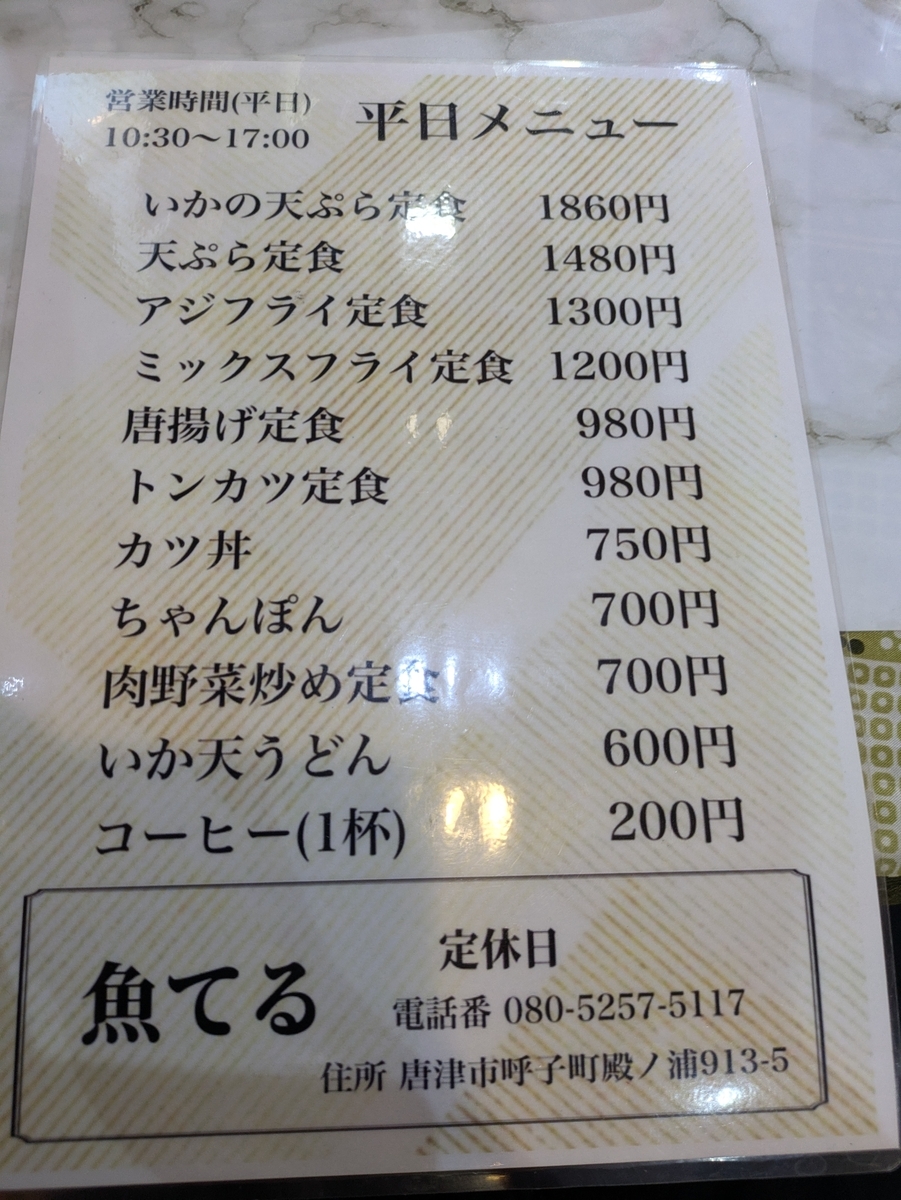 営業時間(平日)
10:30〜17:00
平日メニュー
いかの天ぷら定食 1860円
天ぷら定食 1480円
アジフライ定食 1300円
ミックスフライ定食 1200円
唐揚げ定食 980円
トンカツ定食 980円
カツ丼 750円
ちゃんぽん 700円
肉野菜炒め定食 700円
いか天うどん 600円
コーヒー(1杯) 200円
魚てる
定休日
電話番 080-5257-5117
住所 唐津市呼子町殿ノ浦913-5